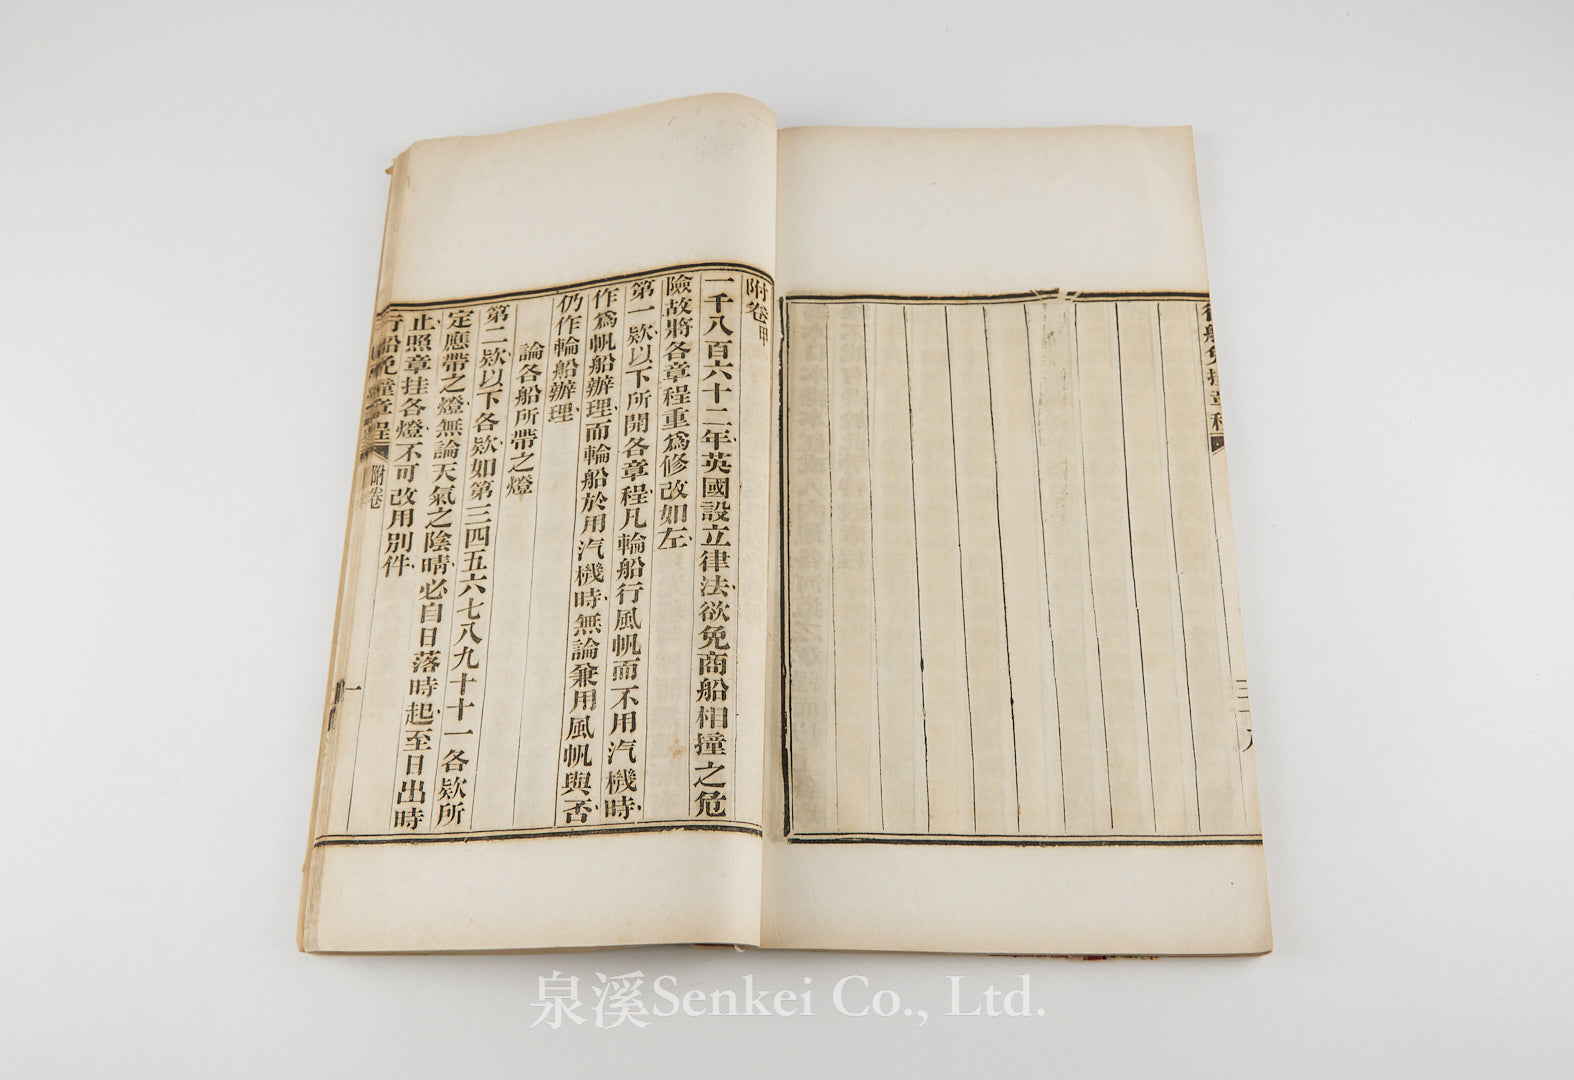 行船免撞章程
三十九
附卷甲
一千八百六十二年英國設立律法欲免商船相撞之危
險故將各章程重爲修改如左
第一欵以下所開各章程凡輪船行風帆而不用汽機時
作爲帆船辦理而輪船於用汽機時無論兼用風帆與否
仍作輪船辦理
論各船所帶之燈
第二欵以下各欵如第三四五六七八九十十一各欵所
定應帶之燈無論天氣之陰晴必自日落時起至日出時
止照章挂各燈不可改用別件
行船免撞章程
附卷
一
泉溪Senkei Co., Ltd.